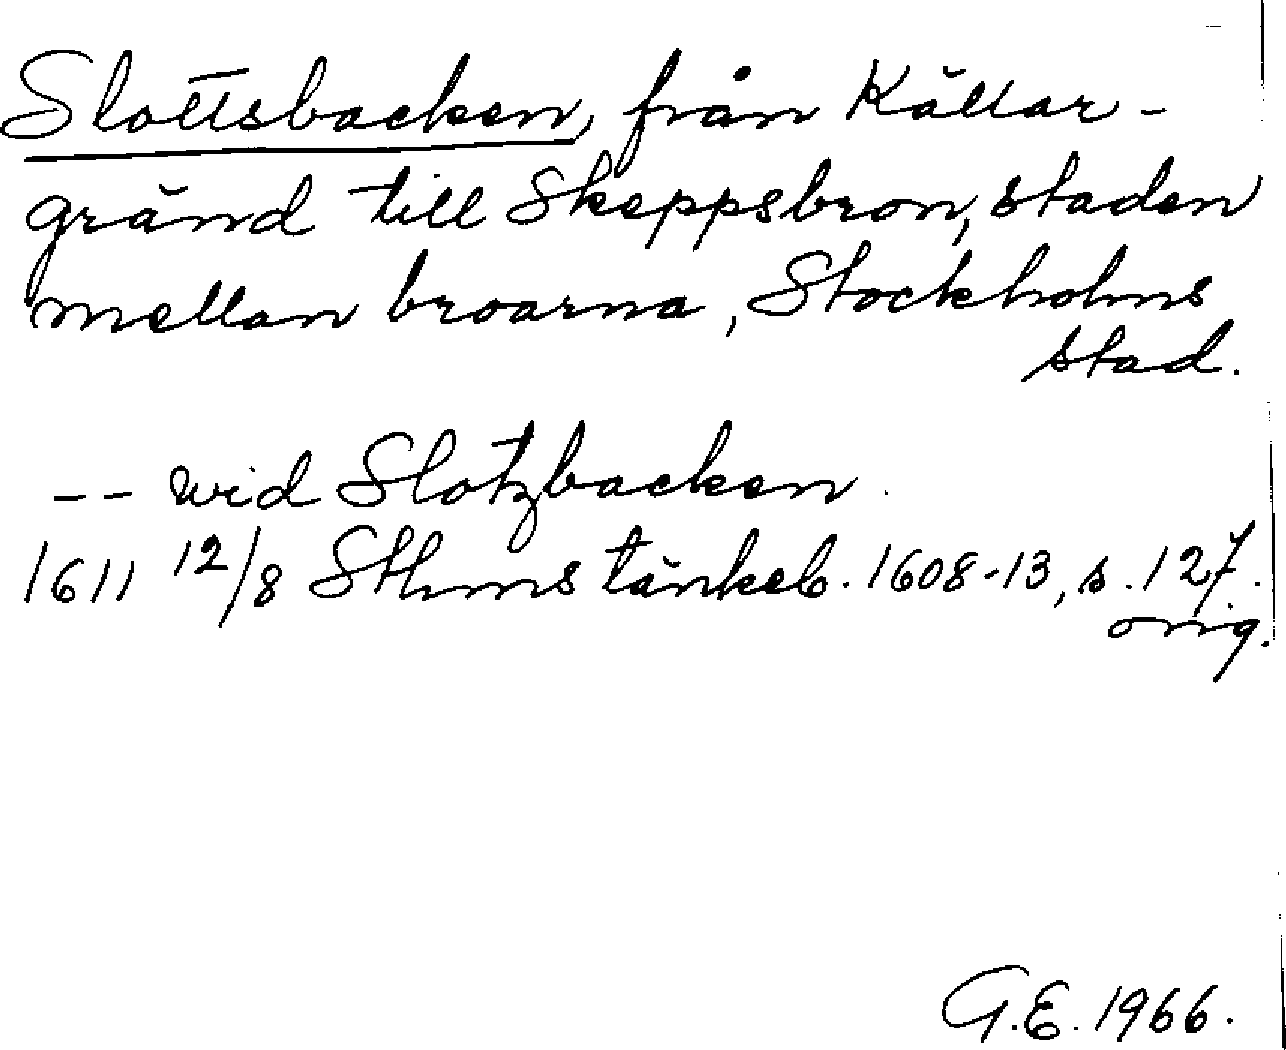 Slottsbacken, från Källar-
gränd till Skeppsbron, staden
mellan broarna, Stockholms
stad.
-- wid Slotzbacken.
1611 12/8 Sthms tänkeb. 1608-13, s. 127.
orig.
G.E. 1966.